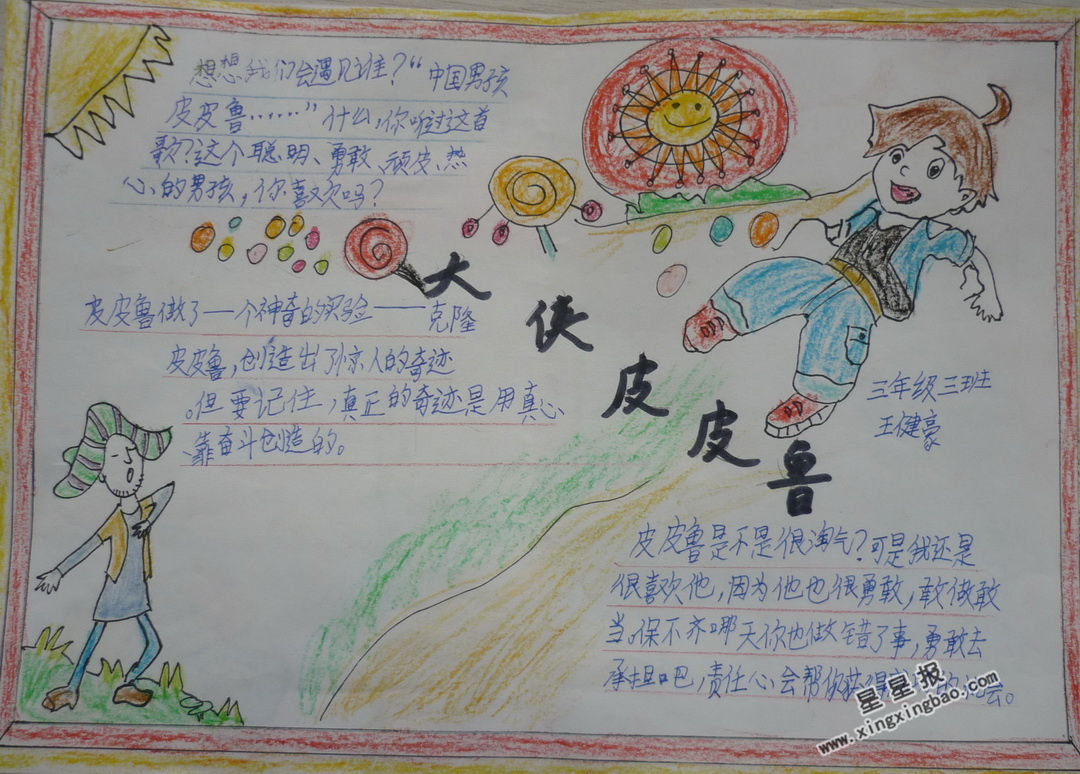 想想我们会遇见谁？“中国男孩
皮皮鲁……”什么，你听过这首
歌？这个聪明、勇敢、顽皮、热
心的男孩，你喜欢吗？
大侠皮皮鲁
皮皮鲁做了一个神奇的实验——克隆
皮皮鲁，创造出了惊人的奇迹
。但要记住，真正的奇迹是用真心
靠奋斗创造的。
三年级三班
王健豪
皮皮鲁是不是很淘气？可是我还是
很喜欢他，因为他也很勇敢，敢做敢
当。保不齐哪天你也做错了事，勇敢去
承担吧，责任心会帮你获得的机会。
星星报
www.xingxingbao.com